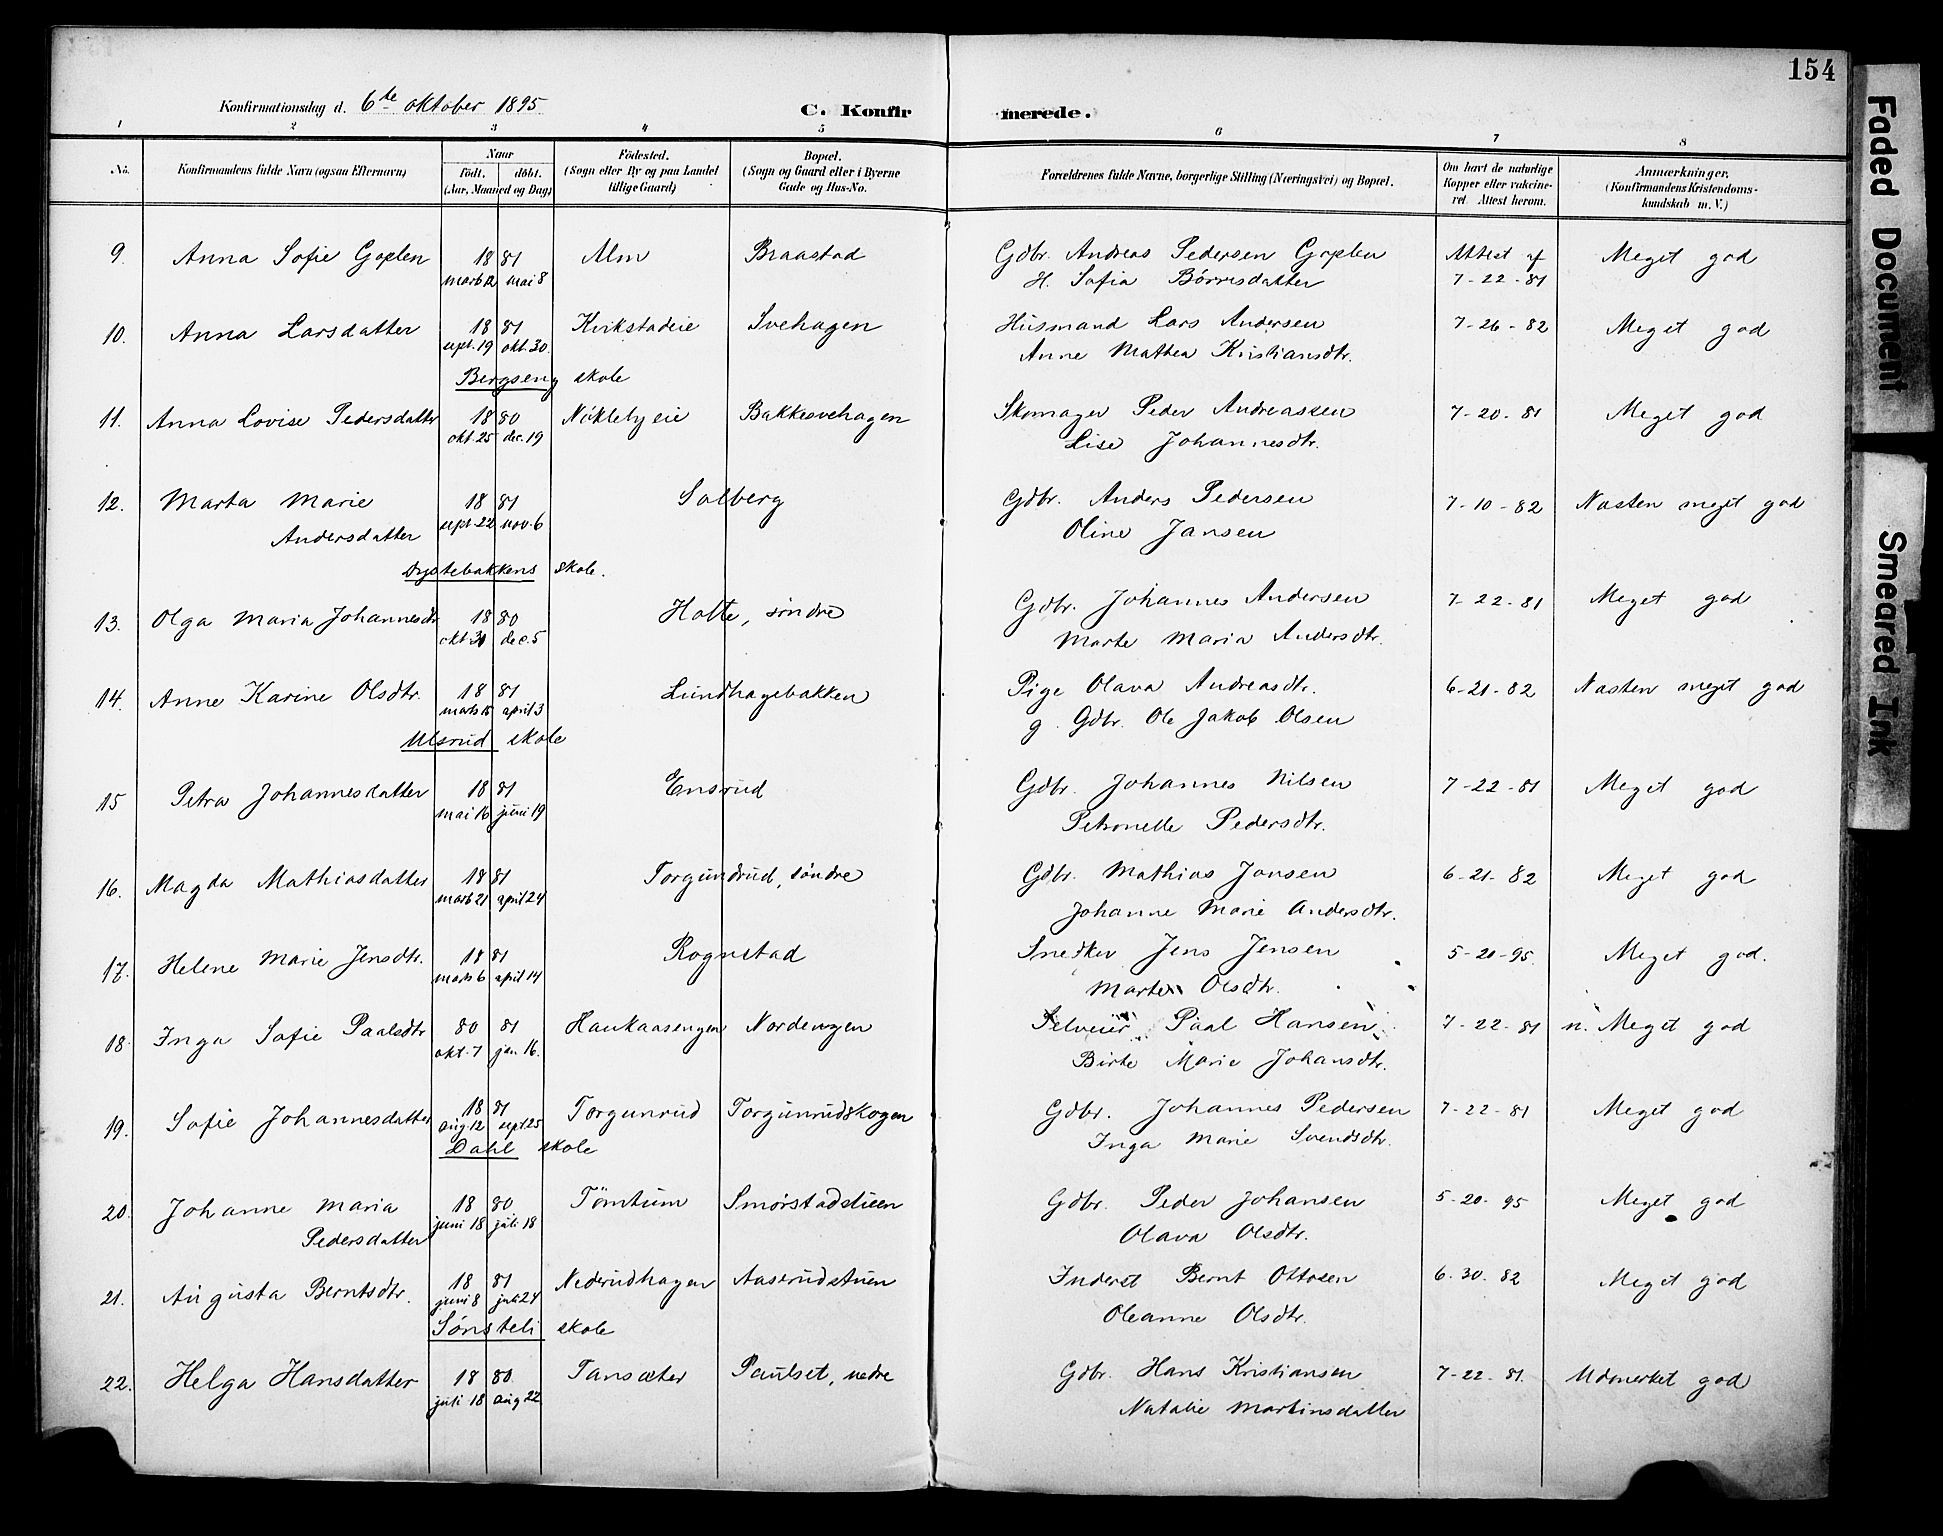 154
Konfirmationsdag d. 6te oktober 1895
C. Konfirmerede.
1 2 3 4 5 6 7 8
No. Konfirmandens fulde Navn (ogsaa Efternavn) Naar født. døbt. (Aar, Maaned og Dag) Fødested. (Sogn eller By og paa Landet tillige Gaard) Bopæl. (Sogn og Gaard eller i Byerne Gade og Hus-No. Forældrenes fulde Navne, borgerlige Stilling (Næringsvei) og Bopæl. Om havt de naturlige Kopper eller vakcineret. Attest herom. Anmærkninger. (Konfirmandens Kristendomskundskab m. V.)
9. Anna Sofie Goplen 18 81 Alm Braastad Gdbr. Andreas Pedersen Goplen Attest af Meget god
marts 12 mai 8 H. Sofia Børresdatter 7-22-81
10. Anna Larsdatter 18 81 Kvikstadeie Svehagen Husmand Lars Andersen 7-26-82 Meget god
sept. 19 okt. 30. Anne Mathea Kristiansdtr.
Bergseng skole
11. Anna Lovise Pedersdatter 18 80 Nøklebyeie Bakkesvehagen Skomager Peder Andreassen 7-20-81 Meget god
okt. 25 dec. 19 Lise Johannesdtr.
12. Marta Marie 18 81 Solberg Gdbr. Anders Pedersen 7-10-82 Næsten meget god
Andersdatter sept. 22 nov. 6 Oline Jansen
Dystebakkens skole.
13. Olga Maria Johannesdtr 18 80 Holte, søndre Gdbr. Johannes Andersen 7-22-81 Meget god
okt. 31 dec. 5 Marte Maria Andersdtr.
14. Anne Karine Olsdtr. 18 81 Lundhagebakken Pige Olava Andreasdtr. 6-21-82 Næsten meget god
marts 15 april 3 g. Gdbr. Ole Jakob Olsen
Ulsrud skole
15 Petra Johannesdatter 18 81 Ensrud Gdbr. Johannes Nilsen 7-22-81 Meget god
mai 16 juni 19 Petronelle Pedersdtr.
16. Magda Mathiasdatter 18 81 Torgundrud, søndre Gdbr. Mathias Jansen 6-21-82 Meget god
marts 21 april 24 Johanne Marie Andersdtr.
17. Helene Marie Jensdtr. 18 81 Rognstad Snedker Jens Jensen 5-20-95. Meget god.
marts 6 april 14 Marte Olsdtr.
18. Inga Sofie Paalsdtr 80 81 Haukaasengen Nordengen Selveier Paal Hansen 7-22-81 n. Meget god
okt. 7 jan. 16. Birte Marie Johansdtr.
19. Sofie Johannesdatter 18 81 Torgunrud Torgunrudskogen Gdbr. Johannes Pedersen 7-22-81 Meget god
aug. 12 sept. 25 Inga Marie Svendsdtr.
Dahl skole
20. Johanne Maria 18 80 Tømtum Smørstadstuen Gdbr. Peder Johansen 5-20-95 Meget god
Pedersdatter juni 18 juli 18 Olava Olsdtr.
21. Augusta Berntsdtr. 18 81 Nederudhagen Aaserudstuen Inderst Bernt Ottosen 6-30-82 Meget god
juni 8 juli 24 Oleanne Olsdtr.
Sønsteli skole
22. Helga Hansdatter 18 80. Tansæter Paulset, nedre Gdbr. Hans Kristiansen 7-22-81. Udmerket god
juli 18 aug 22 Natalie Martinsdatter
Faded Document
Smeared Ink